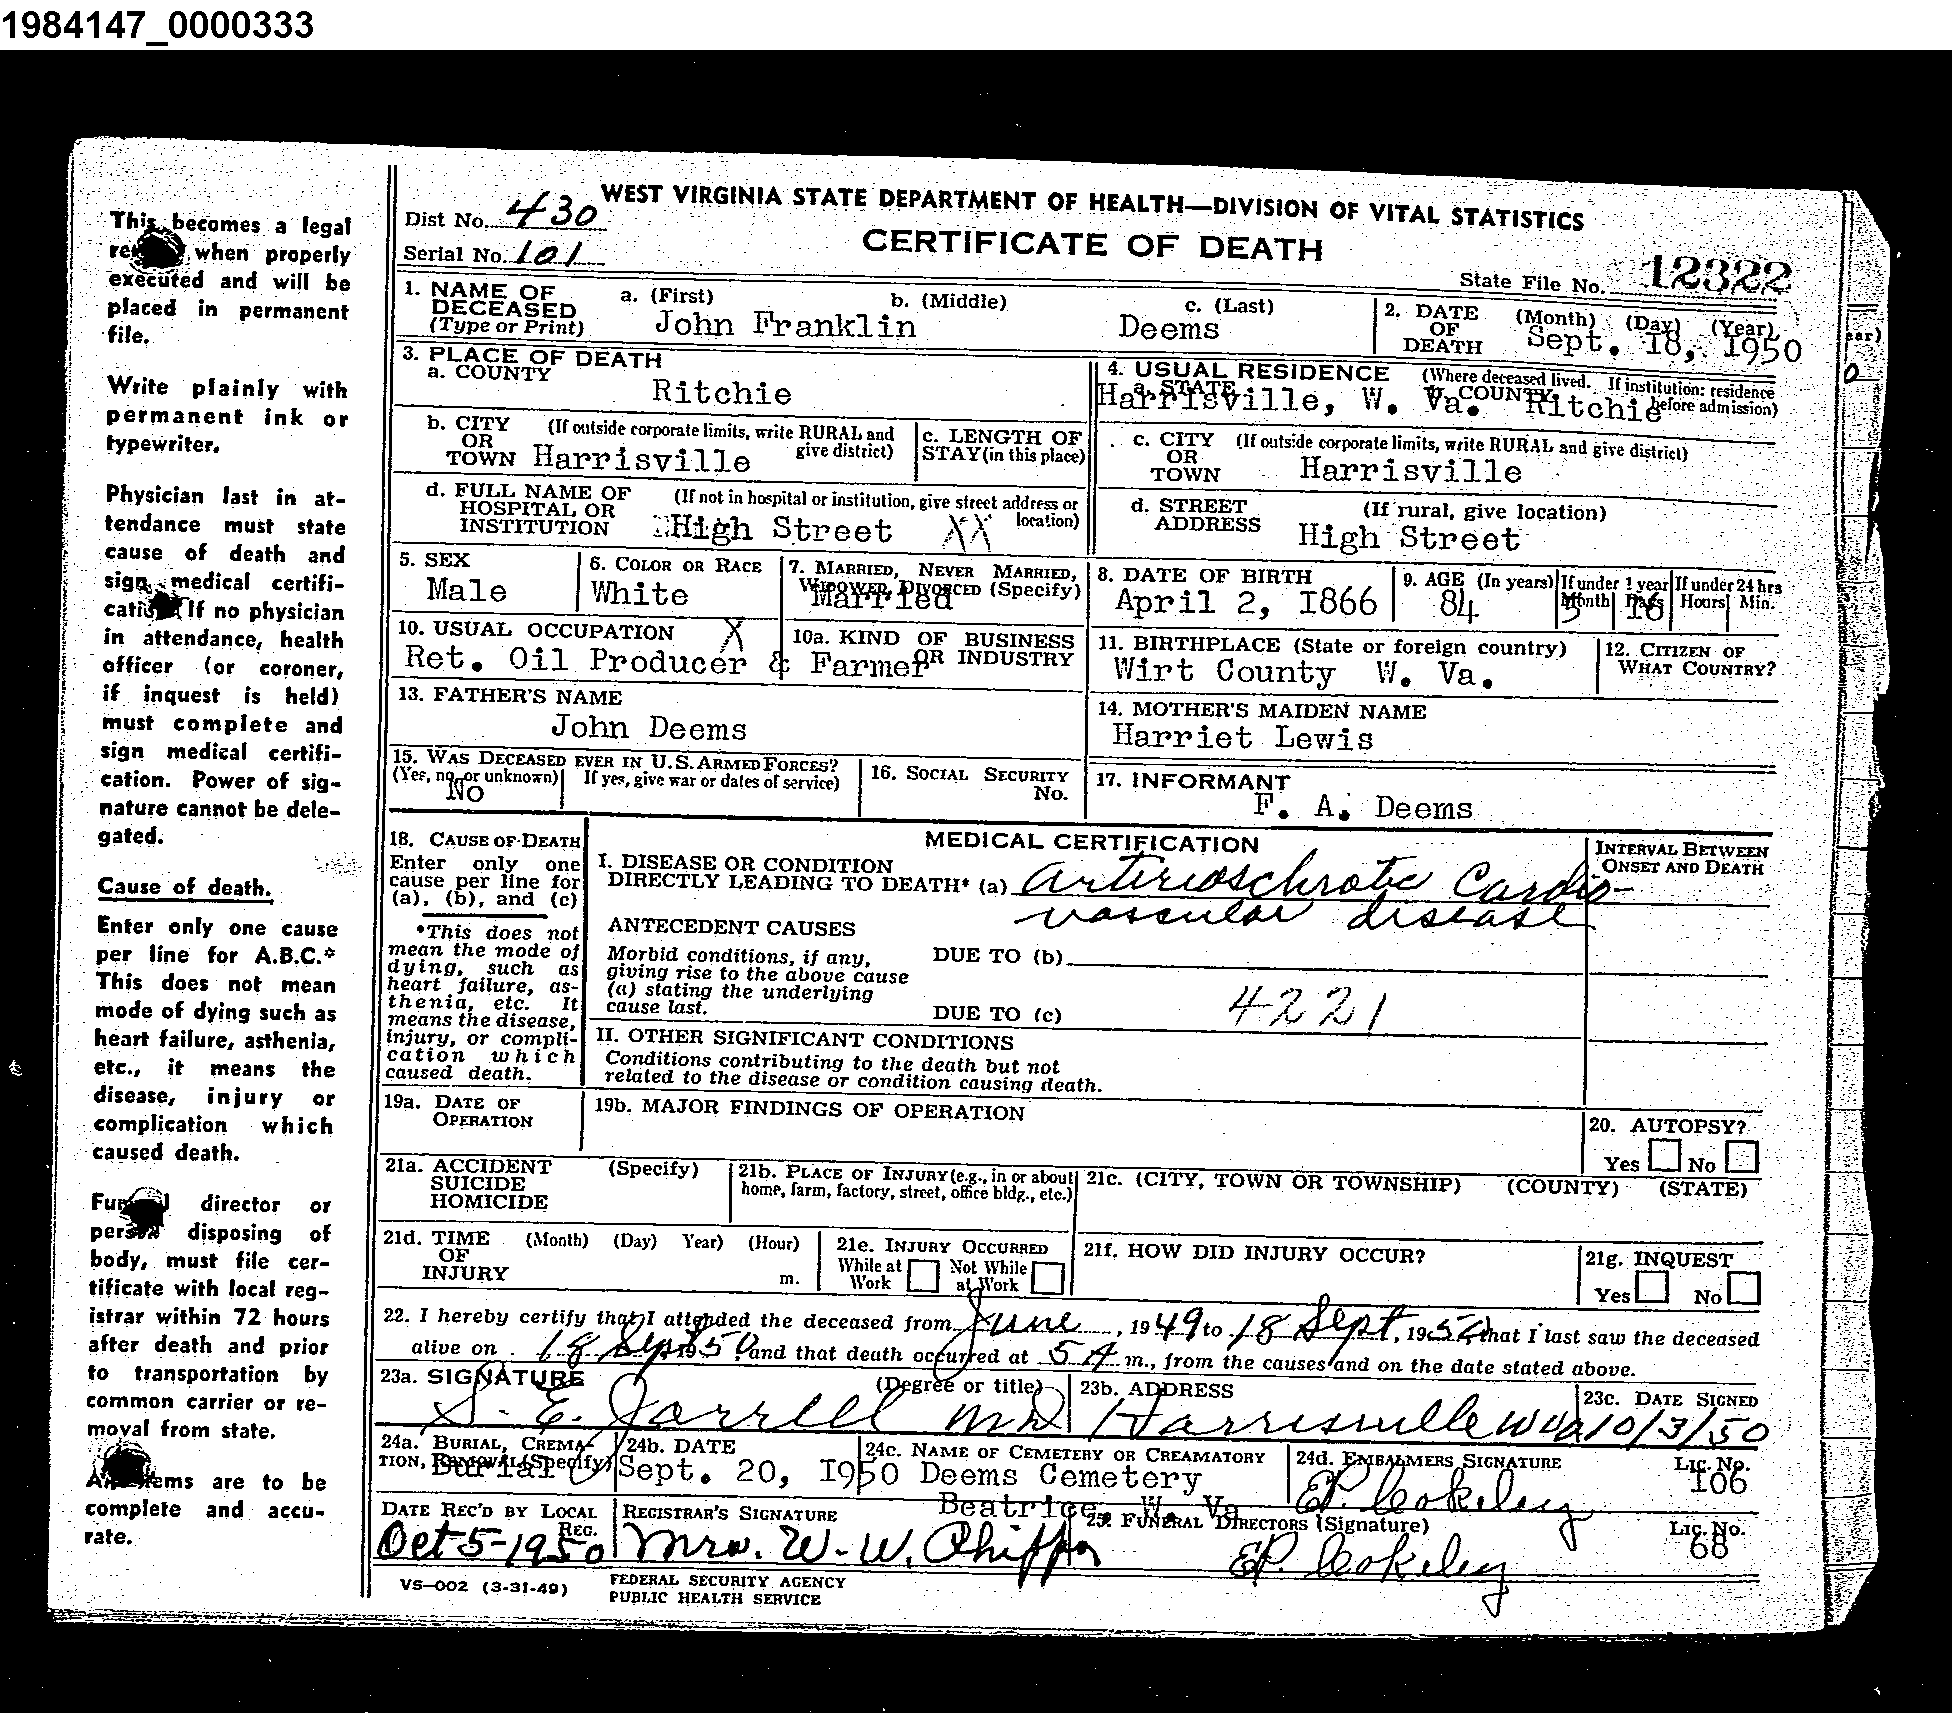 1984147_0000333
This becomes a legal
when properly
executed and will be
placed in permanent
file.
Write plainly with
permanent ink or
typewriter.
Physician last in at-
tendance must state
cause of death and
sign medical certifi-
If no physician
in attendance, health
officer (or coroner,
if inquest is held)
must complete and
sign medical certifi-
cation. Power of sig-
nature cannot be dele-
gated.
Cause of death.
Enter only one cause
per line for A.B.C.*
This does not mean
mode of dying such as
heart failure, asthenia,
etc., it means the
disease, injury or
complication which
caused death.
director or
person disposing of
body, must file cer-
tificate with local reg-
istrar within 72 hours
after death and prior
to transportation by
common carrier or re-
moval from state.
items are to be
complete and accu-
rate.
WEST VIRGINIA STATE DEPARTMENT OF HEALTH—DIVISION OF VITAL STATISTICS
Dist No. 430
CERTIFICATE OF DEATH
Serial No. 101
State File No. 12322
1. NAME OF DECEASED (Type or Print) a. (First) b. (Middle) c. (Last)
John Franklin Deems
2. DATE OF DEATH (Month) (Day) (Year)
Sept. 18, 1950
3. PLACE OF DEATH
a. COUNTY
Ritchie
4. USUAL RESIDENCE (Where deceased lived. If institution: residence before admission)
a. STATE b. COUNTY
Harrisville, W. Va. Ritchie
b. CITY OR TOWN (If outside corporate limits, write RURAL and give district)
Harrisville
c. LENGTH OF STAY (in this place)
c. CITY OR TOWN (If outside corporate limits, write RURAL and give district)
Harrisville
d. FULL NAME OF HOSPITAL OR INSTITUTION (If not in hospital or institution, give street address or location)
High Street XX
d. STREET ADDRESS (If rural, give location)
High Street
5. SEX
Male
6. COLOR OR RACE
White
7. MARRIED, NEVER MARRIED, WIDOWED, DIVORCED (Specify)
Married
8. DATE OF BIRTH
April 2, 1866
9. AGE (In years) If under 1 year If under 24 hrs
84 Month 5 Days 16 Hours Min.
10. USUAL OCCUPATION X
10a. KIND OF BUSINESS OR INDUSTRY
Ret. Oil Producer & Farmer
11. BIRTHPLACE (State or foreign country)
Wirt County W. Va.
12. CITIZEN OF WHAT COUNTRY?
13. FATHER'S NAME
John Deems
14. MOTHER'S MAIDEN NAME
Harriet Lewis
15. WAS DECEASED EVER IN U.S. ARMED FORCES?
(Yes, no, or unknown) If yes, give war or dates of service)
No
16. SOCIAL SECURITY No.
17. INFORMANT
F. A. Deems
18. CAUSE OF DEATH
Enter only one
cause per line for
(a), (b), and (c)
*This does not
mean the mode of
dying, such as
heart failure, as-
thenia, etc. It
means the disease,
injury, or compli-
cation which
caused death.
MEDICAL CERTIFICATION
INTERVAL BETWEEN ONSET AND DEATH
I. DISEASE OR CONDITION
DIRECTLY LEADING TO DEATH* (a) Arterioschrotic Cardio-
vascular disease
ANTECEDENT CAUSES
Morbid conditions, if any,
giving rise to the above cause
(a) stating the underlying
cause last.
DUE TO (b)
DUE TO (c)
4221
II. OTHER SIGNIFICANT CONDITIONS
Conditions contributing to the death but not
related to the disease or condition causing death.
19a. DATE OF OPERATION
19b. MAJOR FINDINGS OF OPERATION
20. AUTOPSY?
Yes No
21a. ACCIDENT SUICIDE HOMICIDE (Specify)
21b. PLACE OF INJURY (e.g., in or about home, farm, factory, street, office bldg., etc.)
21c. (CITY, TOWN OR TOWNSHIP) (COUNTY) (STATE)
21d. TIME OF INJURY (Month) (Day) Year) (Hour) m.
21e. INJURY OCCURRED
While at Work Not While at Work
21f. HOW DID INJURY OCCUR?
21g. INQUEST
Yes No
22. I hereby certify that I attended the deceased from June, 1949 to 18 Sept, 1950 that I last saw the deceased
alive on 18 Sept 1950, and that death occurred at 5 A m., from the causes and on the date stated above.
23a. SIGNATURE (Degree or title)
S. E. Jarrell MD
23b. ADDRESS
Harrisville W Va
23c. DATE SIGNED
10/3/50
24a. BURIAL, CREMATION, REMOVAL (Specify)
Burial
24b. DATE
Sept. 20, 1950
24c. NAME OF CEMETERY OR CREAMATORY
Deems Cemetery
Beatrice, W. Va
24d. EMBALMERS SIGNATURE LIC. NO.
E.P. Cokeley 106
DATE REC'D BY LOCAL REG.
Oct 5-1950
REGISTRAR'S SIGNATURE
Mrs. W. W.
25. FUNERAL DIRECTORS (Signature) LIC. NO.
E.P. Cokeley 68
VS—002 (3-31-49)
FEDERAL SECURITY AGENCY
PUBLIC HEALTH SERVICE